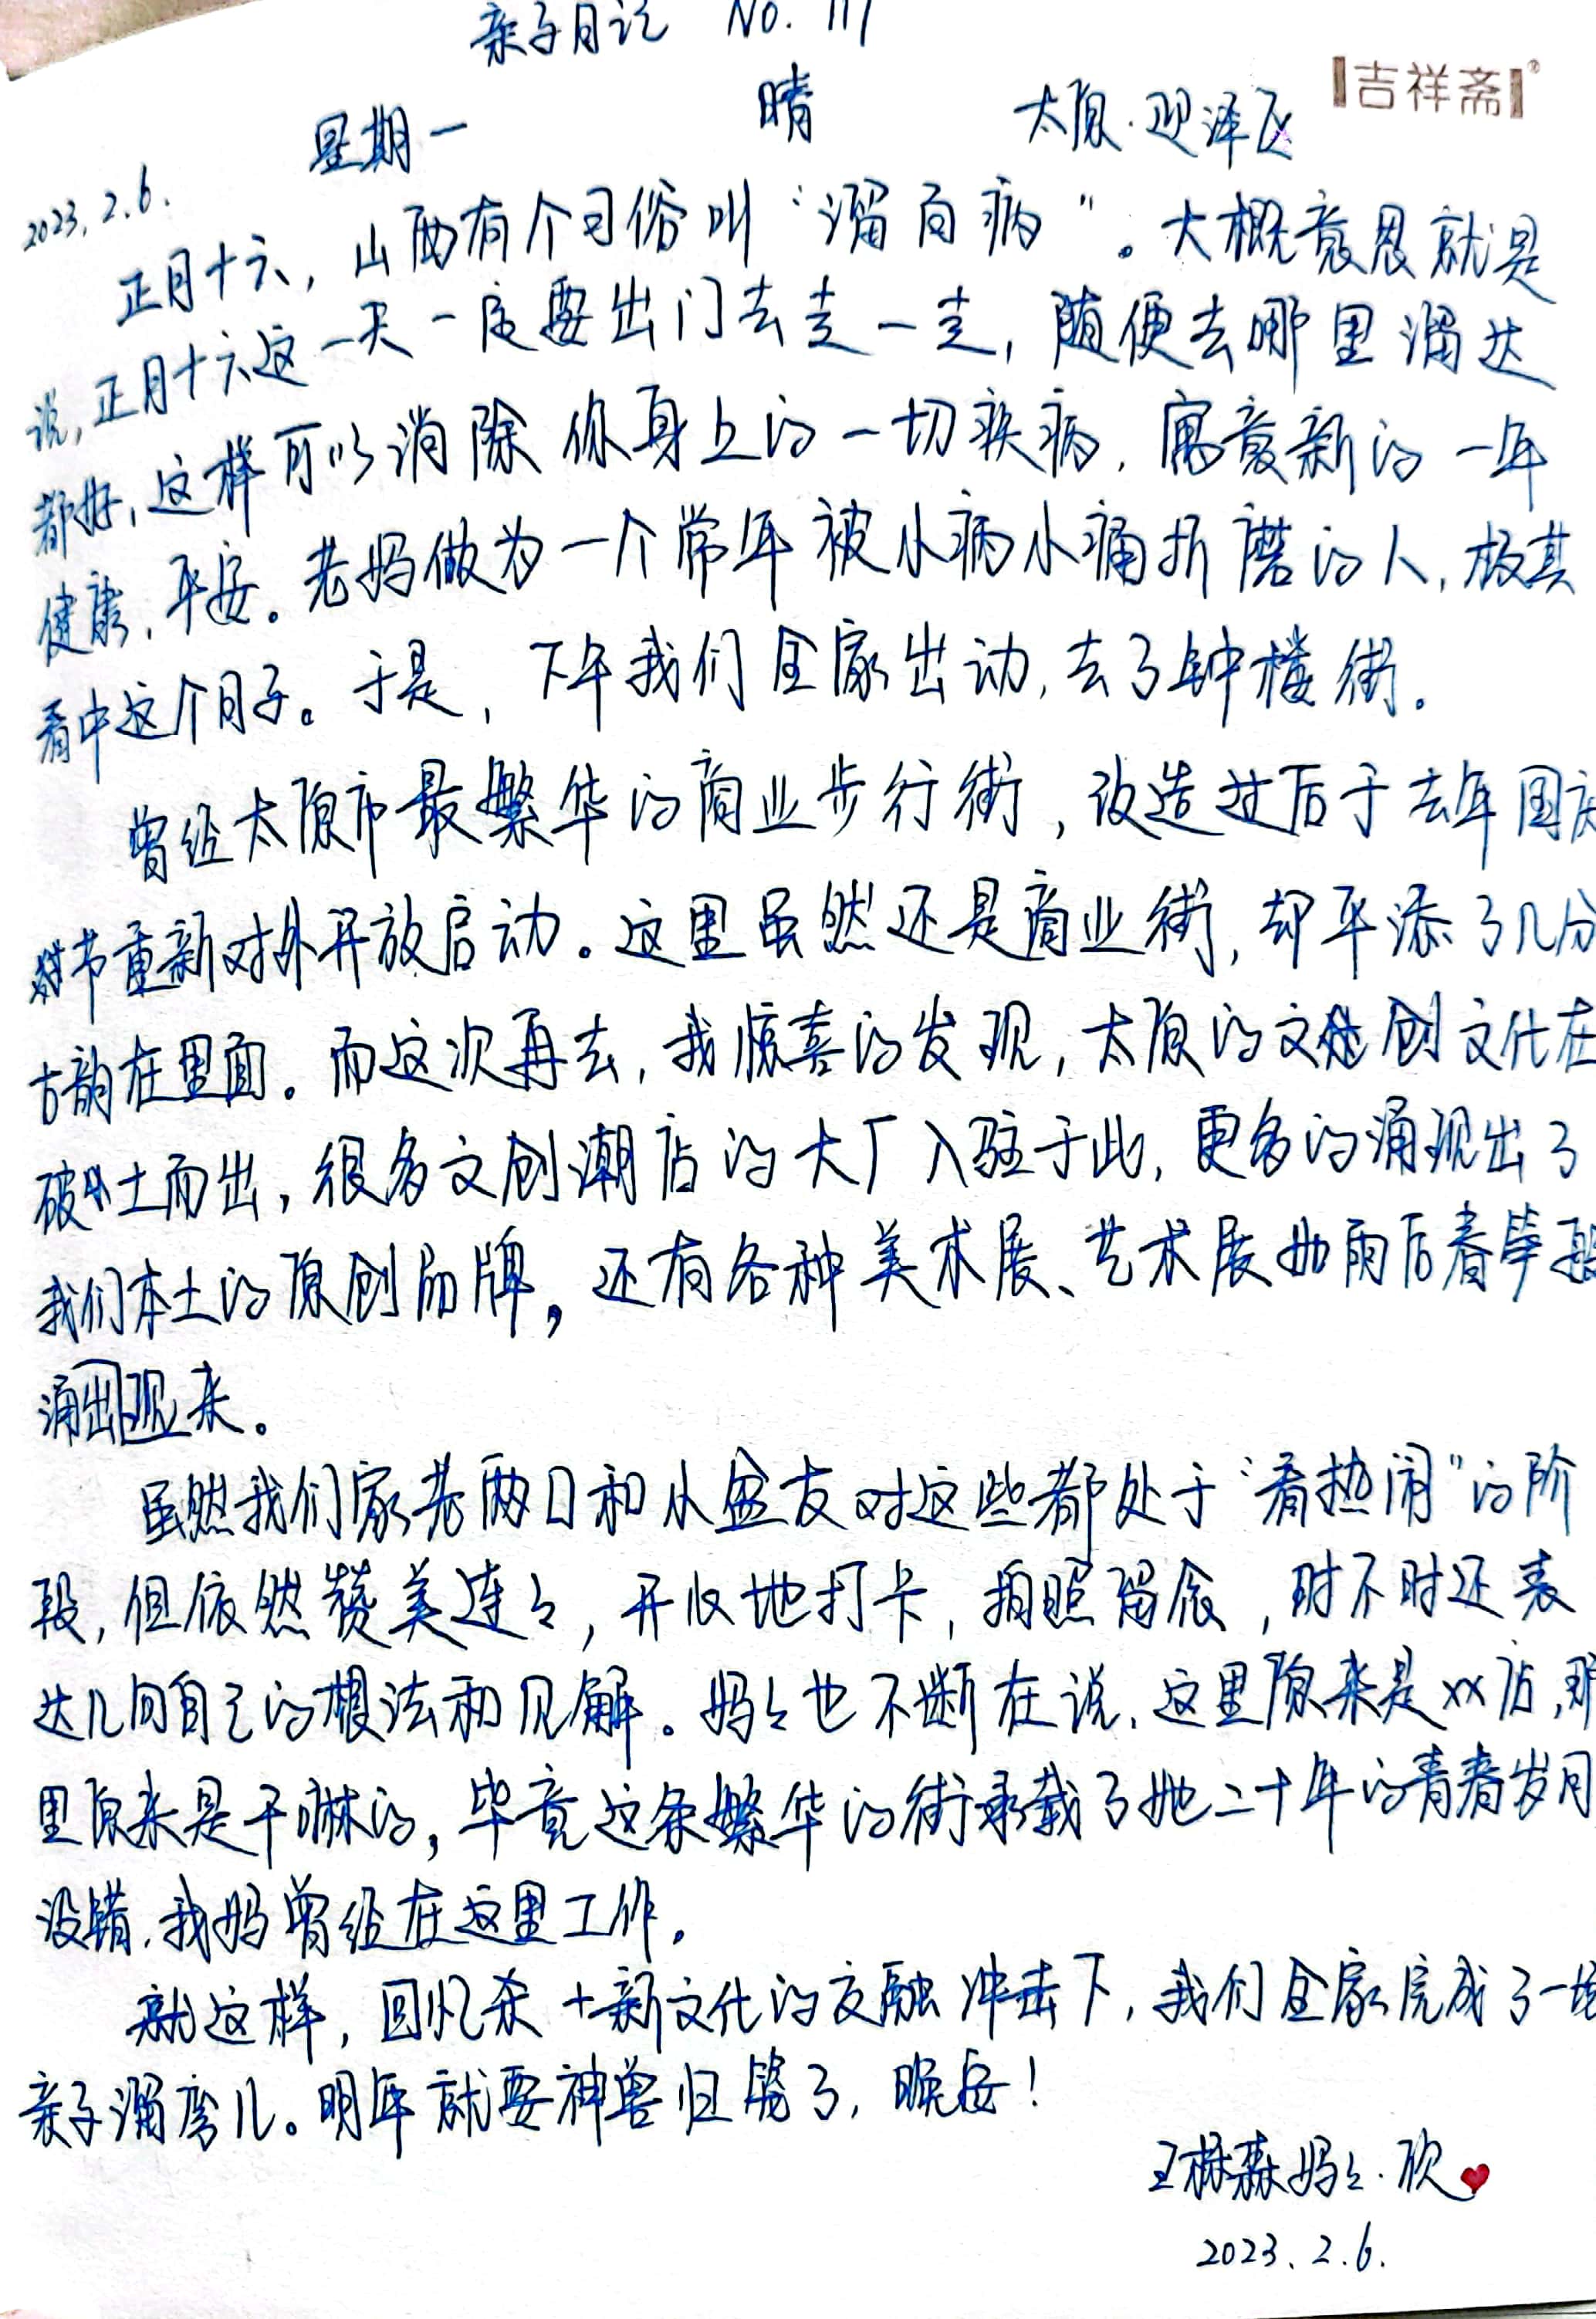 亲子日记 NO. 111
吉祥斋
2023.2.6. 星期一 晴 太原·迎泽区
正月十六，山西有个习俗叫“溜百病”。大概意思就是
说，正月十六这一天一定要出门去走一走，随便去哪里溜达
都好，这样可以消除你身上的一切疾病，寓意新的一年
健康，平安。老妈做为一个常年被小病小痛折磨的人，放其
看中这个日子。于是，下午我们全家出动，去了钟楼街。
曾经太原市最繁华的商业步行街，改造过后于去年国庆
节重新对外开放启动。这里虽然还是商业街，却平添了几分
古韵在里面。而这次再去，我惊喜的发现，太原的文创文化在
破土而出，很多文创潮店的大厂入驻于此，更多的涌现出了
我们本土的原创品牌，还有各种美术展、艺术展如雨后春笋般
涌出现来。
虽然我们家老两口和小盆友对这些都处于“看热闹”的阶
段，但依然赞美连々，开心地打卡，拍照留念，时不时还表
达几句自己的想法和见解。妈々也不断在说，这里原来是xx店，那
里原来是干嘛的，毕竟这条繁华的街承载了她二十年的青春岁月
没错，我妈曾经在这里工作。
就这样，回忆杀+新文化的交融冲击下，我们全家完成了一场
亲子溜弯儿。明年就要神兽归笼了，晚安！
王梣森妈々·欣
2023.2.6.